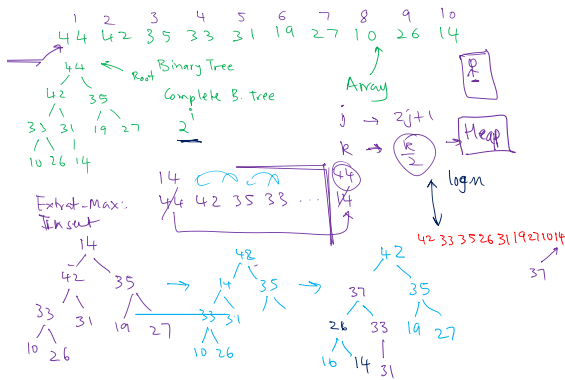 1 2 3 4 5 6 7 8 9 10
44 42 35 33 31 19 27 10 26 14
44
Root
Binary Tree
42 35
Complete B. Tree
33 31 19 27
10 26 14
2^i
Array
j → 2j+1
k → k/2 → Heap
logn
14 44
Extrat-Max:
44 42 35 33 ... 14
Insert
42 33 35 26 31 19 27 10 14
37
14
42 35
33 31 19 27
10 26
42
14 35
33 31
10 26
42
37 35
26 33 19 27
10 14 31